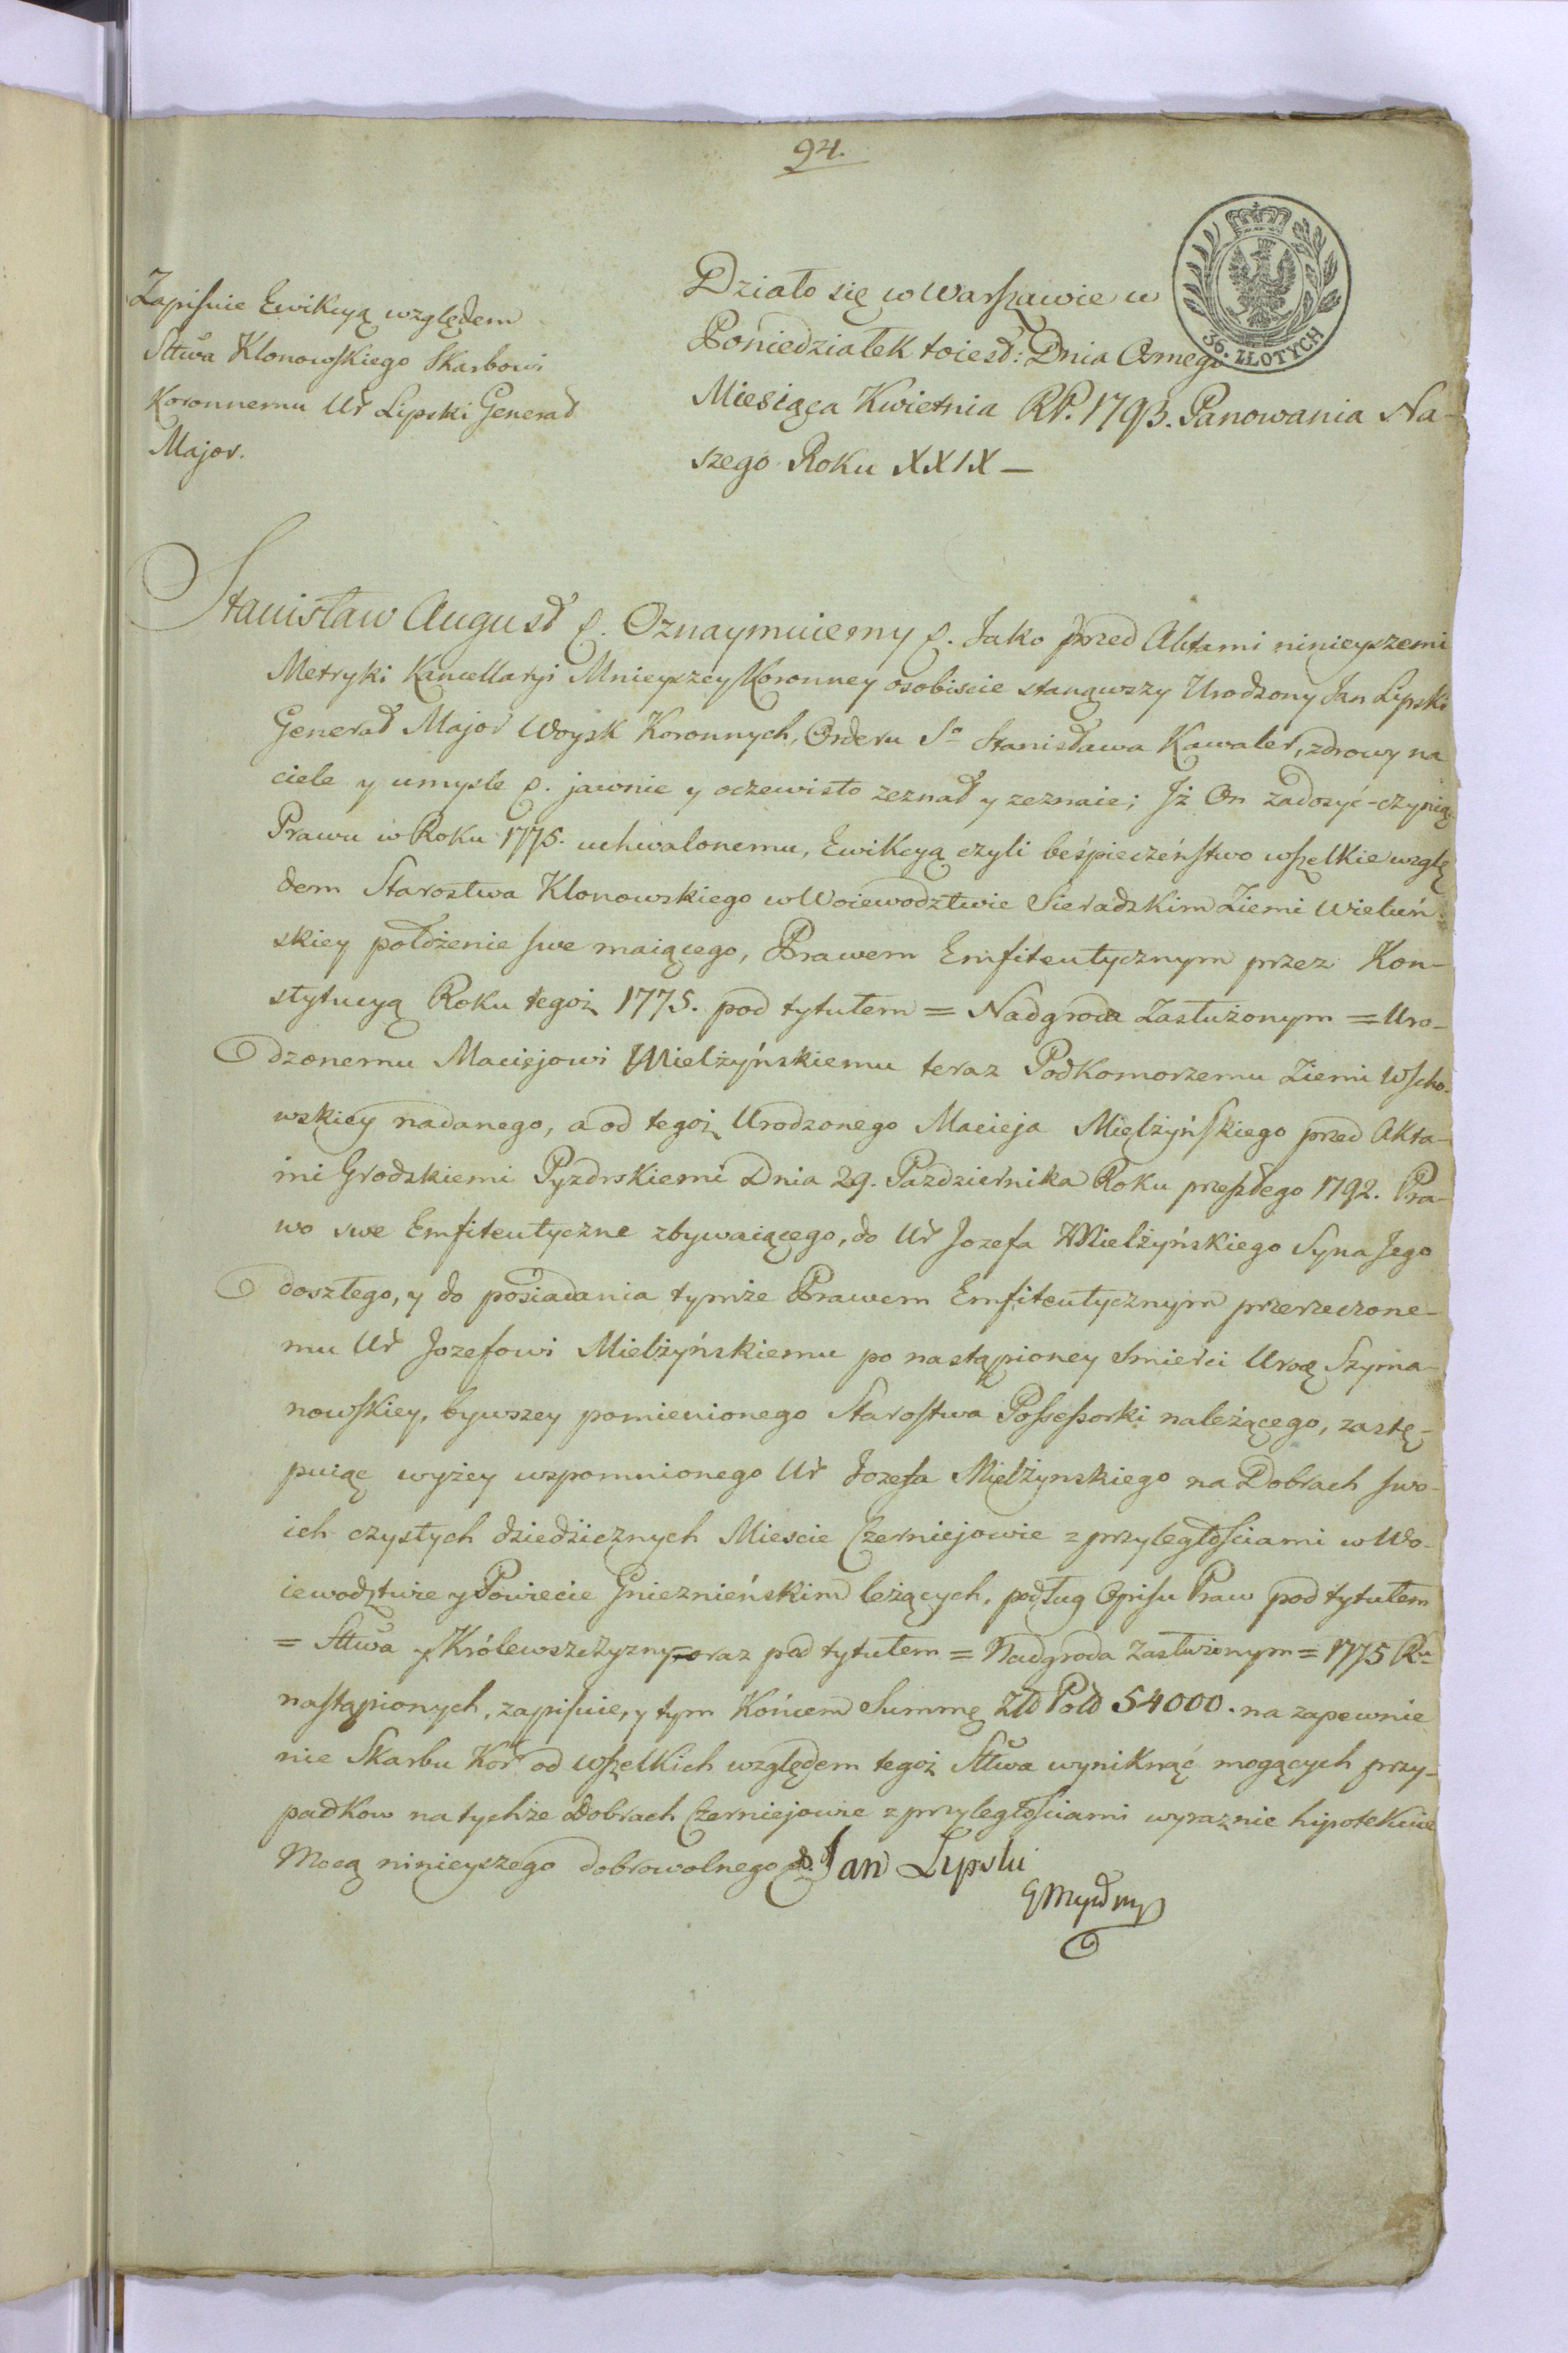 94.
36. ZŁOTYCH
Zapisuie Ewikcyą względem
Sttwa Klonowskiego Skarbowi
Koronnemu Ur Lipski Generał
Major.
Działo się w Warszawie w
Poniedziałek toiest: Dnia Osmego
Miesiąca Kwietnia RP. 1793. Panowania Na-
szego Roku XXIX —
Stanisław August &. Oznaymuiemy &. Jako przed Aktami ninieyszemi
Metryki Kancellaryi Mnieyszey Koronney osobiscie stanąwszy Urodzony Jan Lipski
Generał Major Woysk Koronnych, Orderu Sgo Stanisława Kawaler, zdrowy na
ciele y umysle &. jawnie y oczewisto zeznał y zeznaie; Jż On zadosyć-czyniąc
Prawu w Roku 1775. uchwalonemu, Ewikcyą czyli beśpieczeństwo wszelkie wzglę
dem Starostwa Klonowskiego w Woiewodztwie Sieradzkim Ziemi Wieluń-
skiey położenie swe maiącego, Prawem Emfiteutycznym przez Kon-
stytucyą Roku tegoż 1775. pod tytułem = Nadgroda Zasłużonym = Uro-
dzonemu Maciejowi Mielżyńskiemu teraz Podkomorzemu Ziemi Wscho-
wskiey nadanego, a od tegoż Urodzonego Macieja Mielżyńskiego przed Akta-
mi Grodzkiemi Pyzdrskiemi Dnia 29. Pazdziernika Roku przeszłego 1792. Pra-
wo swe Emfiteutyczne zbywaiącego, do Ur Jozefa Mielżyńskiego Syna Jego
doszłego, y do posiadania tymże Prawem Emfiteutycznym przerzeczone-
mu Ur Jozefowi Mielżyńskiemu po nastąpioney smierci Urodz Szyma-
nowskiey, bywszey pomienionego Starostwa Possessorki należącego, zastę-
puiąc wyżey wspomnionego Ur Jozefa Mielżynskiego na Dobrach swo-
ich czystych dziedzicznych Miescie Czerniejowie z przyległościami w Wo-
iewodztwie y Powiecie Gnieznieńskim leżących, podług Opisu Praw pod tytułem
= Sttwa y Królewszczyzny = oraz pod tytułem = Nadgroda Zasłużonym = 1775 Ru
nastąpionych, zapisuie, y tym Końcem Summę Złł Poll 54000. na zapewnie
nie Skarbu Kor od wszelkich względem tegoż Sttwa wyniknąć mogących przy-
padkow na tychże Dobrach Czerniejowie z przyległościami wyraznie hipotekuie
Mocą ninieyszego dobrowolnego &. Jan Lipski
GMmp